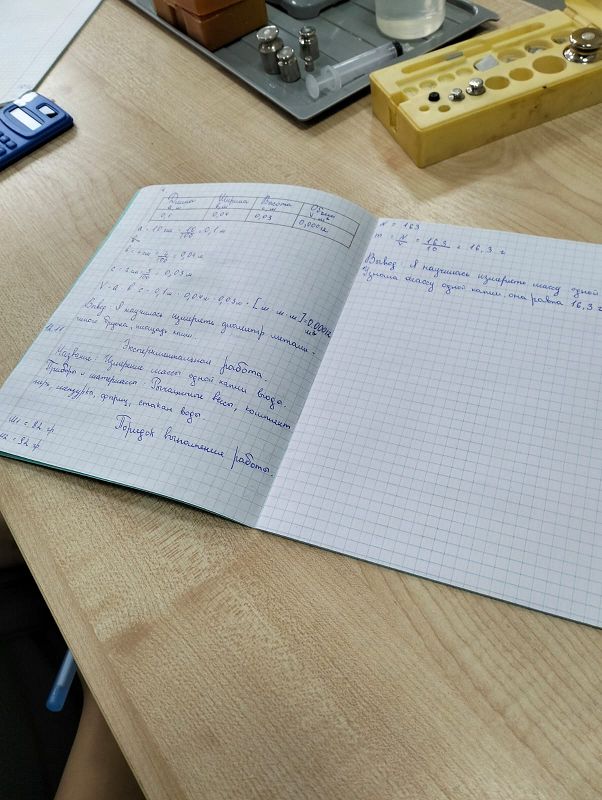 Длина Ширина Высота Объем
а, м в, м с, м V, м³
0,1 0,04 0,03 0,00012
a = 10 см = 10/100 = 0,1 м
в = 4 см = 4/100 = 0,04 м
с = 3 см = 3/100 = 0,03 м
V = a · в · с = 0,1 м · 0,04 м · 0,03 м = [м · м · м] = 0,00012 м³
Вывод: Я научилась измерять диаметр
бруска, площадь
Экспериментальная работа.
Название: Измерение массы одной капли воды.
Приборы и материалы: Рычажные весы, комплект
гирь, мензурка, шприц, стакан воды
Порядок выполнения работы.
m1 = 82 гр.
m2 = 92 гр.
N = 163
m = N/V = 163/10 = 16,3 г
Вывод: Я научилась измерять массу одной
Узнала массу одной капли, она равна 16,3 г